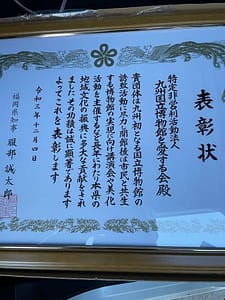 表彰状
特定非営利活動法人
九州国立博物館を愛する会殿
貴団体は九州初となる国立博物館の
誘致活動に尽力し開館後は市民と共生
する博物館の実現に向け講演会や美化
活動を主催するなど長年にわたり本県の
地域文化の振興に多大な貢献をされ
ましたその功績は誠に顕著であります
よってこれを表彰します
令和三年十二月四日
福岡県知事 服部誠太郎